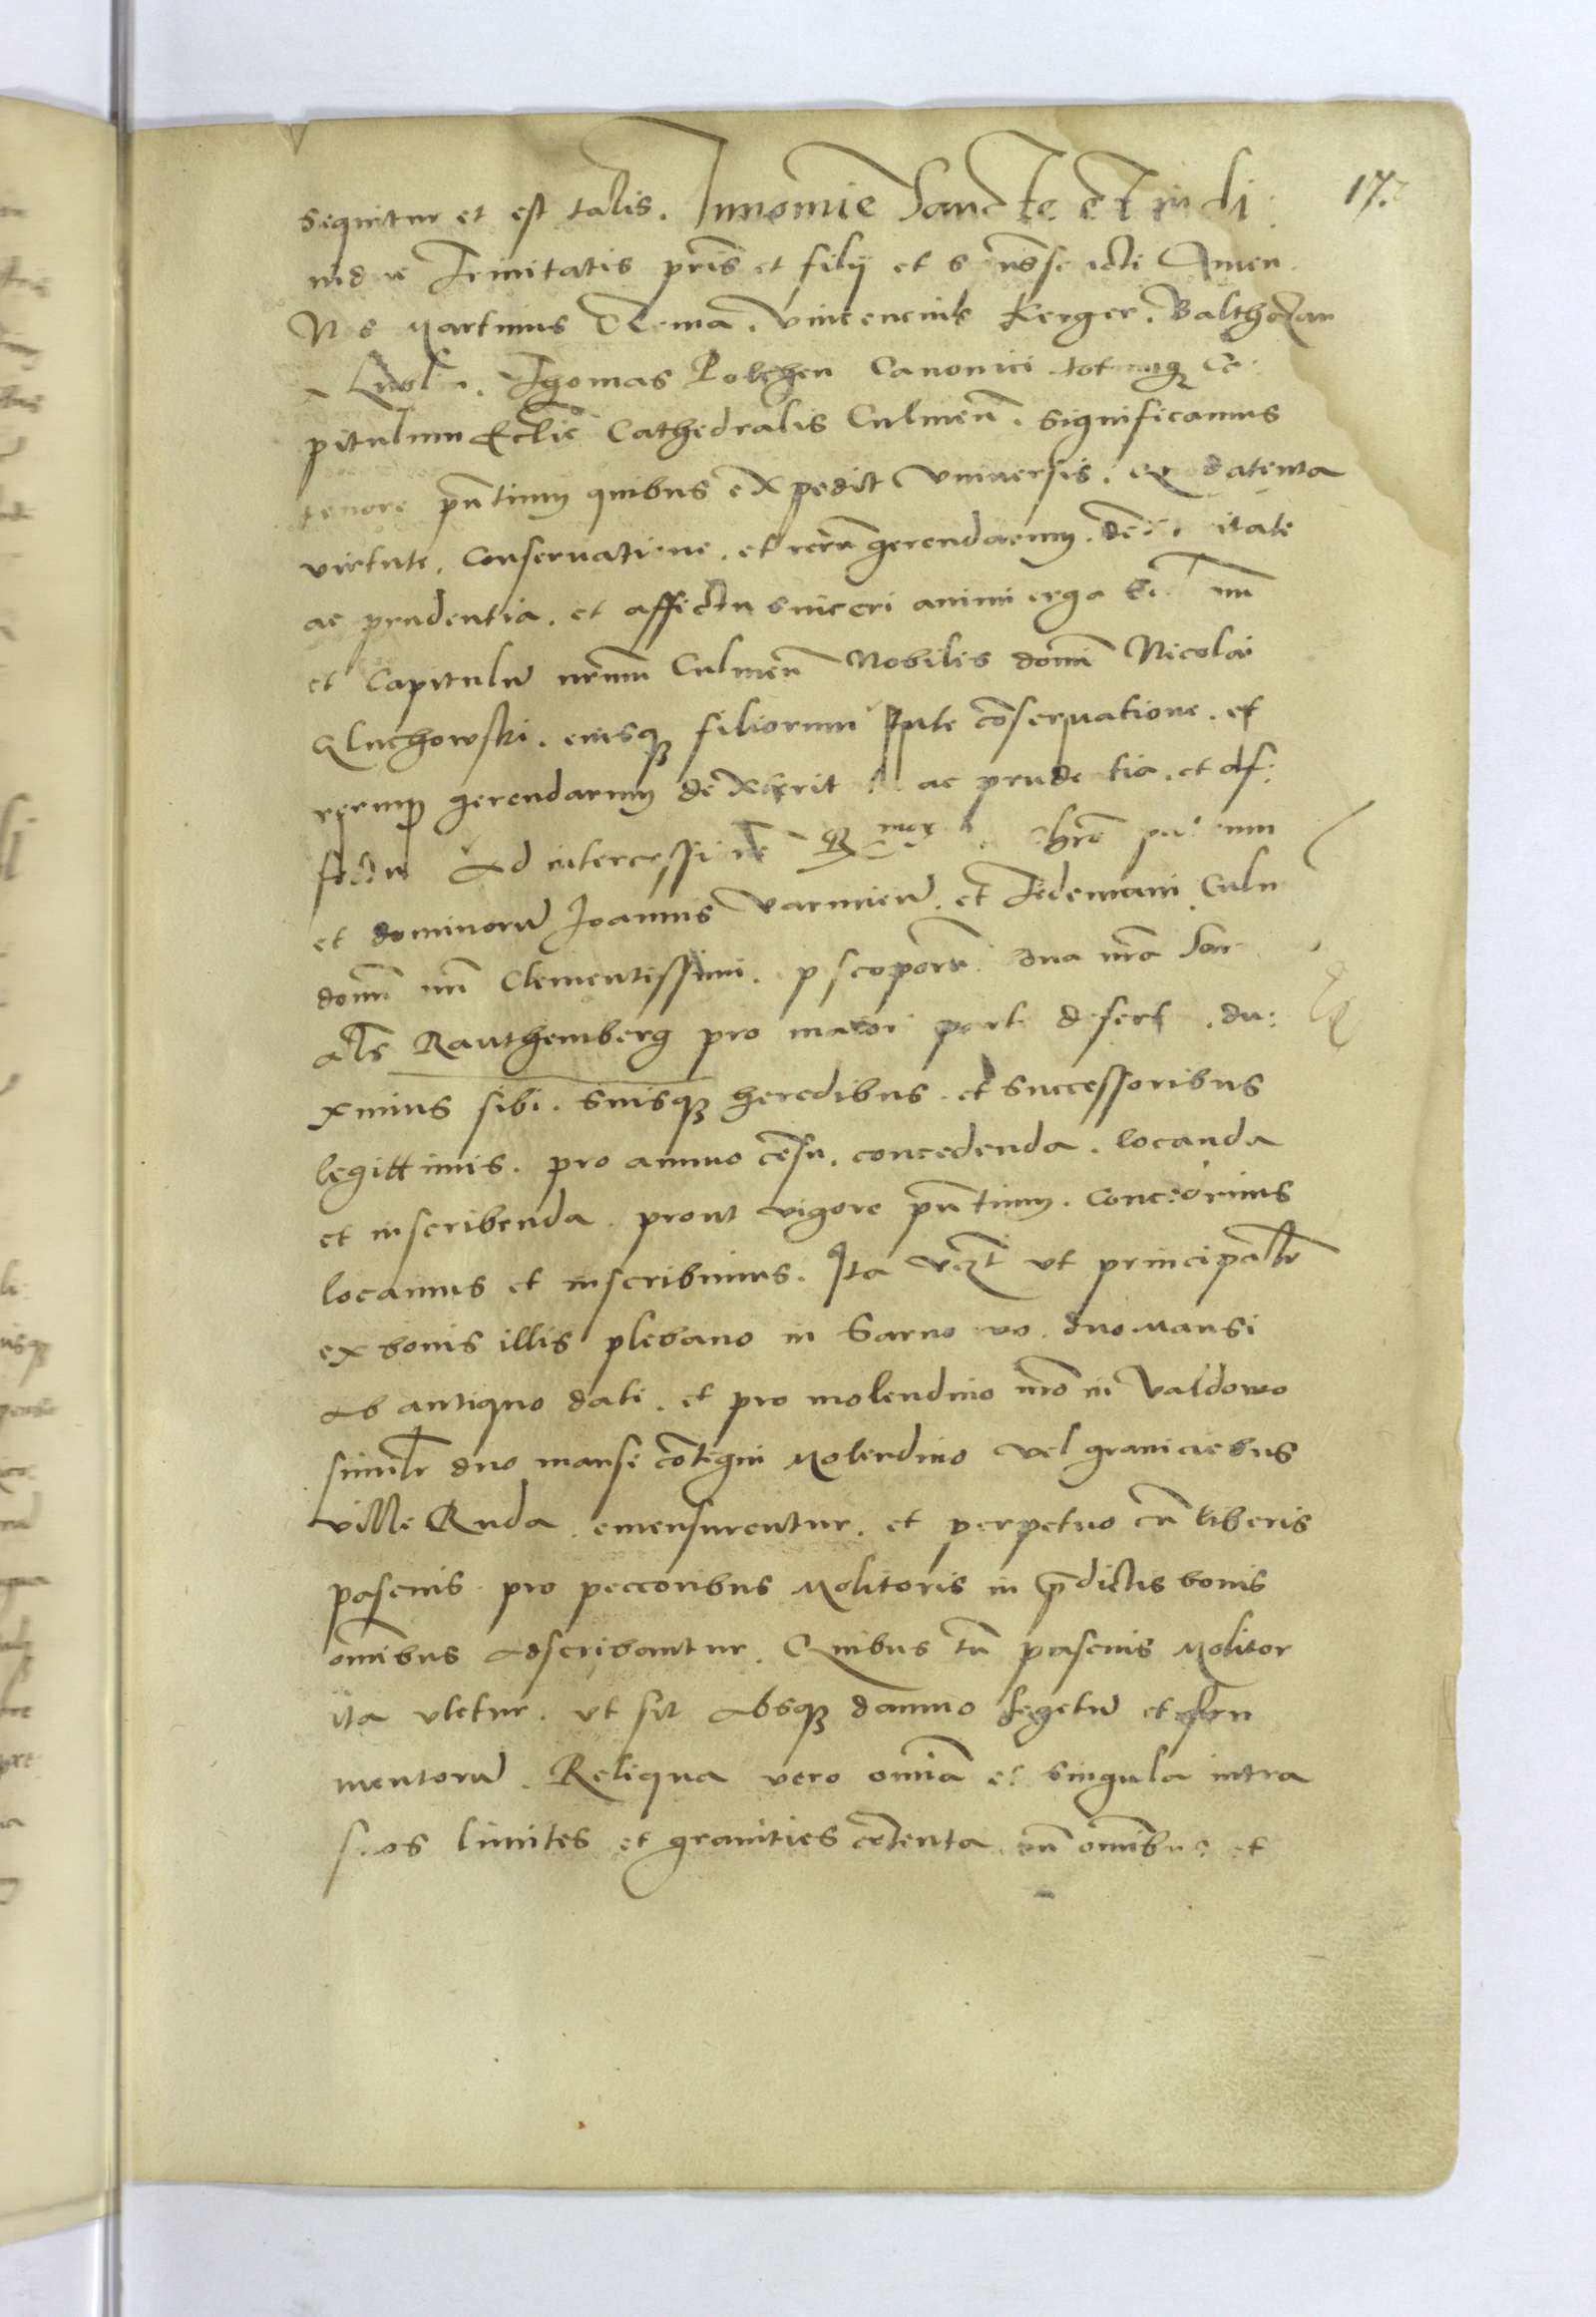 17.
sequitur et est talis. In nomie Sancte et indi
uidue Trinitatis pris et filij et s Amen
Nos Martinus Vincencius Kerger. Balthazar
a Lubl. Thomas Polchen Canonici totumq Ca:
pitulum Eccliē Cathedralis Culmeñ. significamus
tenore pñtium quibus expedit vniuersis. datenta
virtute. conseruatione. et rerū gerendarum. itate
ac prudentia. et affectu sinceri animi erga
et Capitulū nrmm Culmeñ Nobilis domi Nicolai
Gluchowski. eiusq filiorum conseruatione. et
rerumq gerendarum dexterit ac prudentia. et af:
fectu ad intercessionē Rmor
et dominorū Joannis Varmieñ. et Tedemanni Culm
domi nri Clementissimi. pscoporū. dua nra Sar
als Rauthemberg pro maiori parte desert. du:
ximus sibi. suisq heredibus et successoribus
legittimis. pro annuo cēsu. concedenda. locanda
et inscribenda. prout vigore pñtium. concedimus
locamus et inscribimus. Ita vzt vt principalr
ex bonis illis plebano in Sarnowo. duo mansi
ab antiquo dati. et pro molendino nro in Valdowo
similr duo mansi cōtigui Molendino vel graniciebus
ville Ruda. emensurentur. et perpetuo cū liberis
pascuis pro peccoribus Molitoris in pdictis bonis
omibus adscribantur. Quibus tñ pascuis Molitor
ita vtetur. vt sit absq damno segetū et fru
mentorū. Reliqua vero omia et singula intra
suos limites et granities cōtenta. cū omibus et